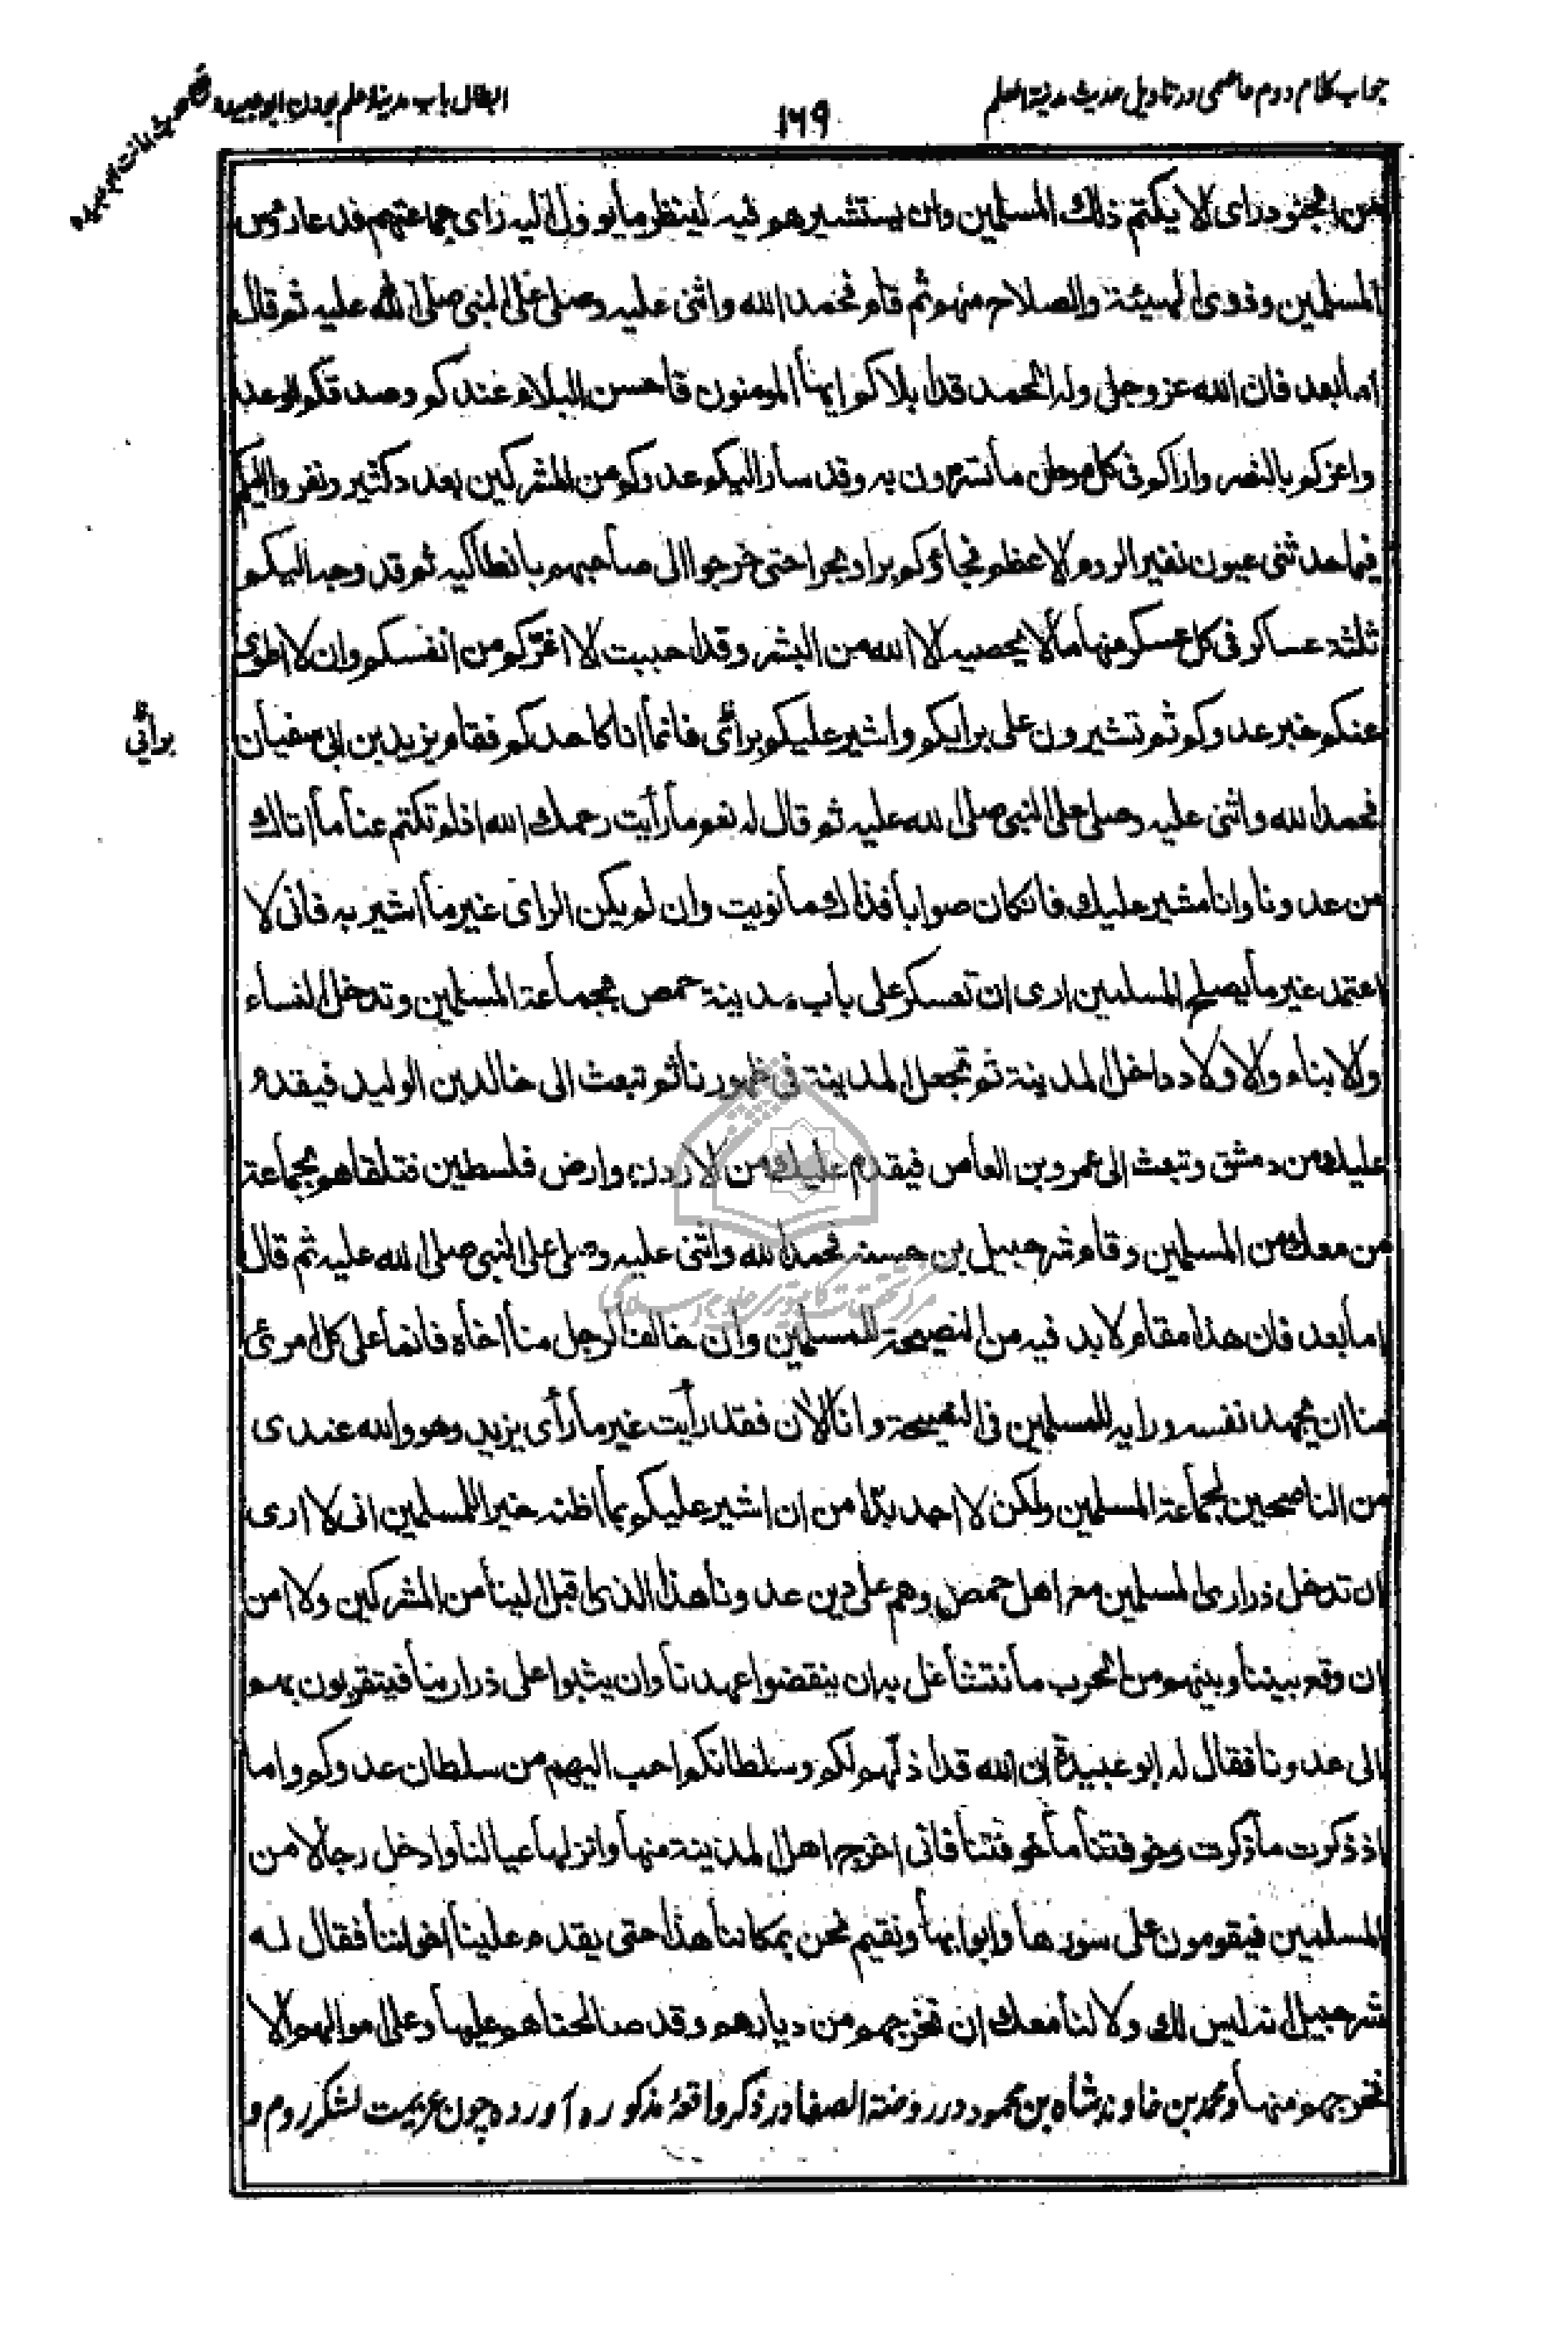 جواب کلام دوم عاصمی در تاویل حدیث مدینة العلم
۱۶۹
ابطال باب مدینة علم بودن ابو عبیده بحدیث امانت ابو عبیده
من الجنود رای لا یکتم ذلك المسلمین وان یستشیرهم فیه لینظر ما یوول الیه رای جماعتهم فدعا رؤس
المسلمین وذوی الهیئة والصلاح منهم ثم قام فحمد الله واثنی علیه وصلی علی النبی صلی الله علیه ثم قال
اما بعد فان الله عز وجل وله الحمد قد ابلاكم ایها المومنون فاحسن البلاء عندكم وصدقكم الوعد
واعزكم بالنصر واراكم فی كل موطن ما تسترون به وقد سار الیكم عدوكم من المشركین بعدد كثیر ونفروا الیكم
فیما حدثنی عیون نفیر الروم الاعظم فجاؤكم برا وبحرا حتی خرجوا الی صاحبهم بانطاكیه ثم قد وجه الیكم
ثلثة عساكر فی كل عسكر منها ما لا یحصیه الا الله من البشر وقد احببت الا اغركم من انفسكم وان لا اطوی
عنكم خبر عدوكم ثم تشیرون علی برایكم واشیر علیكم برائی فانما انا كاحدكم فقام یزید بن ابی سفیان
برائي
فحمد الله واثنی علیه وصلی علی النبی صلی الله علیه ثم قال له نعم ما رأیت رحمك الله اذ لم تكتم عنا ما اتاك
من عدونا وانا مشیر علیك فانكان صوابا فذاك ما نویت وان لم یكن الرای غیر ما اشیر به فانی لا
اعتمد غیر ما یصلح المسلمین اری ان تعسكر علی باب مدینة حمص بجماعة المسلمین وتدخل النساء
والابناء والاولاد داخل المدینة ثم تجعل المدینة فی ظهورنا ثم تبعث الی خالد بن الولید فیقدم
علیك من دمشق وتبعث الی عمرو بن العاص فیقدم علیك من الاردن وارض فلسطین فتلقاهم بجماعة
من معك من المسلمین وقام شرحبیل بن حسنه فحمد الله واثنی علیه وصلی علی النبی صلی الله علیه ثم قال
اما بعد فان هذا مقام لا بد فیه من النصیحة للمسلمین وان خالف الرجل منا اخاه فانما علی كل امرئ
منا ان یجهد نفسه ورایه للمسلمین فی النصیحة وانا الان فقد رأیت غیر ما رأی یزید وهو والله عندی
من الناصحین لجماعة المسلمین ولكن لا اجد بدّا من ان اشیر علیكم بما اظنه خیرا للمسلمین انی لا اری
ان تدخل ذراری المسلمین مع اهل حمص وهم علی دین عدونا هذا الذی اقبل الینا من المشركین ولا امن
ان وقع بیننا وبینهم من الحرب ما نتشاغل به ان ینقضوا عهدنا وان یثبوا علی ذرارینا فیتقربون بهم
الی عدونا فقال له ابو عبیدة ان الله قد اذلهم لكم وسلطانكم احب الیهم من سلطان عدوكم واما
اذ ذكرت ما ذكرت وخوفتنا ما خوفتنا فانی اخرج اهل المدینة منها وانزلها عیالنا وادخل رجالا من
المسلمین فیقومون علی سورها وابوابها ونقیم نحن بمكاننا هذا حتی یقدم علینا اخواننا فقال له
شرحبیل انه لیس لك ولا لنا معك ان نخرجهم من دیارهم وقد صالحناهم علیها وعلی اموالهم الا
نخرجهم منها ومحمد بن خاوند شاه بن محمود در روضة الصفا در ذكر واقعۀ مذكوره آورده چون عزیمت لشكر روم و
مرکز تحقیقات کامپیوتری علوم اسلامی